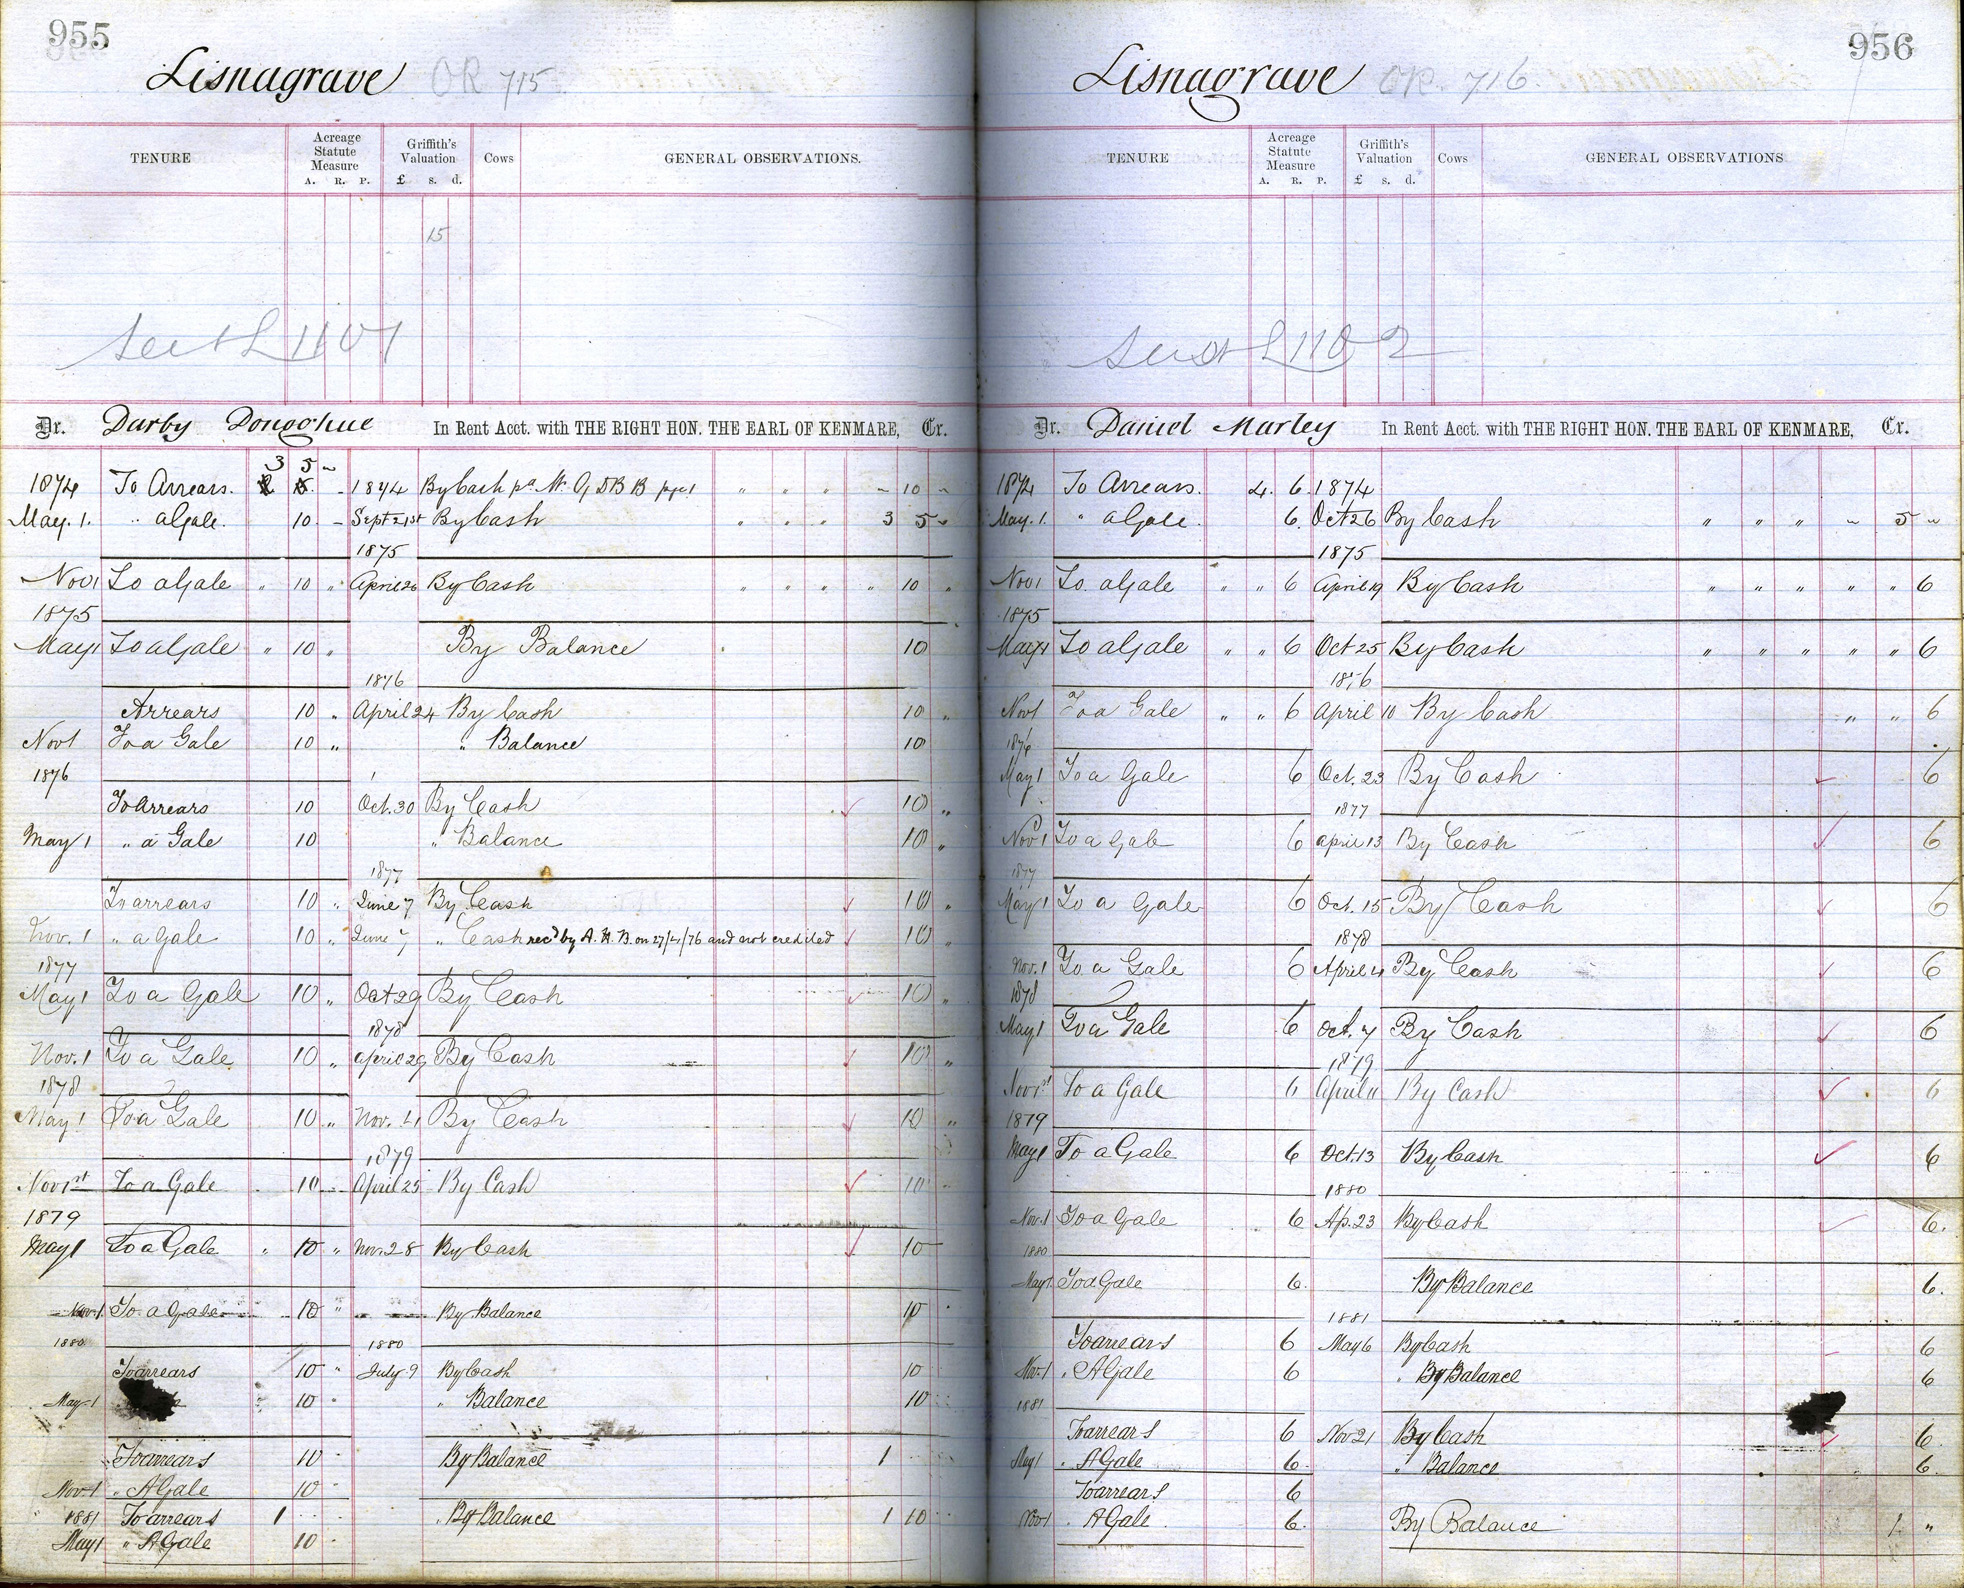 955
Lisnagrave OR 715
TENURE
Acreage Statute Measure
A. R. P.
Griffith's Valuation
£ s. d.
Cows
GENERAL OBSERVATIONS.
15
L 1101
Dr. Darby Donoghue In Rent Acct. with THE RIGHT HON. THE EARL OF KENMARE, Cr.
3 5 "
1874 To Arrears. - 1874 By Cash " " " - 10 -
May. 1. " a Gale. 10 - Sept 21st By Cash " " " 3 5 "
1875
Nov 1 To a Gale " 10 " April 26 By Cash " " " " 10 "
1875
May 1 To a Gale " 10 " By Balance 10
1876
Arrears 10 " April 24 By Cash 10 "
Nov 1 To a Gale 10 " " Balance 10
1876
To Arrears 10 Oct. 30 By Cash 10 "
May 1 " a Gale 10 " Balance 10 "
1877
To arrears 10 " June 7 By Cash 10 "
Nov. 1 " a Gale 10 " June 7 " Cash recd by A. H. B. on 27/4/76 and not credited 10
1877
May 1 To a Gale 10 " Oct 29 By Cash 10 "
1878
Nov. 1 To a Gale 10 " April 29 By Cash 10 "
1878
May 1 To a Gale 10 " Nov. 4 By Cash 10 "
1879
Nov 1st To a Gale 10 April 25 By Cash 10
1879
May 1 To a Gale " 10 " Nov. 28 By Cash 10
Nov. 1 To a Gale 10 " By Balance 10
1880 1880
To arrears 10 " July 9 By Cash 10
May 1 10 " " Balance 10
To arrears 10 " By Balance 1
Nov 1 " A Gale 10 "
1881 To arrears 1 By Balance 1 10
May 1 " A Gale 10
956
Lisnagrave OR. 716.
TENURE
Acreage Statute Measure
A. R. P.
Griffith's Valuation
£ s. d.
Cows
GENERAL OBSERVATIONS
L 1102
Dr. Daniel Marley In Rent Acct. with THE RIGHT HON. THE EARL OF KENMARE, Cr.
1874 To Arrears. 4. 6. 1874
May. 1. " a Gale. 6. Oct 26 By Cash " " " " 5 "
1875
Nov 1 To. a Gale " " 6 April 19 By Cash " " " " " 6
1875
May 1 To a Gale " " 6 Oct 25 By Cash " " " " " 6
1876
Nov 1 To a Gale " " 6 April 10 By Cash " " 6
1876
May 1 To a Gale 6 Oct. 23 By Cash 6
1877
Nov 1 To a Gale 6 April 13 By Cash 6
1877
May 1 To a Gale 6 Oct. 15 By Cash 6
1878
Nov. 1 To a Gale 6 April 4 By Cash 6
1878
May 1 To a Gale 6 Oct. 7 By Cash 6
1879
Nov 1st To a Gale 6 April 11 By Cash 6
1879
May 1 To a Gale 6 Oct. 13 By Cash 6
1880
Nov. 1 To a Gale 6 Ap. 23 By Cash 6.
1880
May 1 To a Gale 6. By Balance 6.
1881
To arrears 6 May 6 By Cash 6
Nov 1 " A Gale 6 " By Balance 6
1881
To arrears 6 Nov 21 By Cash 6.
May 1 " A Gale 6. " Balance 6.
To arrears 6
Nov 1 " A Gale 6. By Balance 1. "